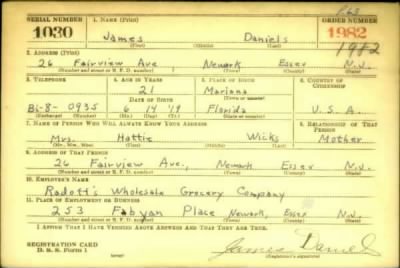 SERIAL NUMBER 1. NAME (Print) ORDER NUMBER
1030 James Daniels 1982
(First) (Middle) (Last)
1982
2. ADDRESS (Print)
26 Fairview Ave Newark Essex N.J.
(Number and street or R. F. D. number) (Town) (County) (State)
3. TELEPHONE 4. AGE IN YEARS 5. PLACE OF BIRTH 6. COUNTRY OF CITIZENSHIP
21 Mariana
DATE OF BIRTH (Town or county)
Bi-8-0935 6 14 '19 Florida U.S.A.
(Exchange) (Number) (Mo.) (Day) (Yr.) (State or country)
7. NAME OF PERSON WHO WILL ALWAYS KNOW YOUR ADDRESS 8. RELATIONSHIP OF THAT PERSON
Mrs. Hattie Wicks Mother
(Mr., Mrs., Miss) (First) (Middle) (Last)
9. ADDRESS OF THAT PERSON
26 Fairview Ave., Newark Essex N.J.
(Number and street or R. F. D. number) (Town) (County) (State)
10. EMPLOYER'S NAME
Radott's Wholesale Grocery Company
11. PLACE OF EMPLOYMENT OR BUSINESS
253 Fabyan Place Newark, Essex N.J.
(Number and street or R. F. D. number) (Town) (County) (State)
I AFFIRM THAT I HAVE VERIFIED ABOVE ANSWERS AND THAT THEY ARE TRUE.
REGISTRATION CARD
D. S. S. Form 1 James Daniels
(Registrant's signature)